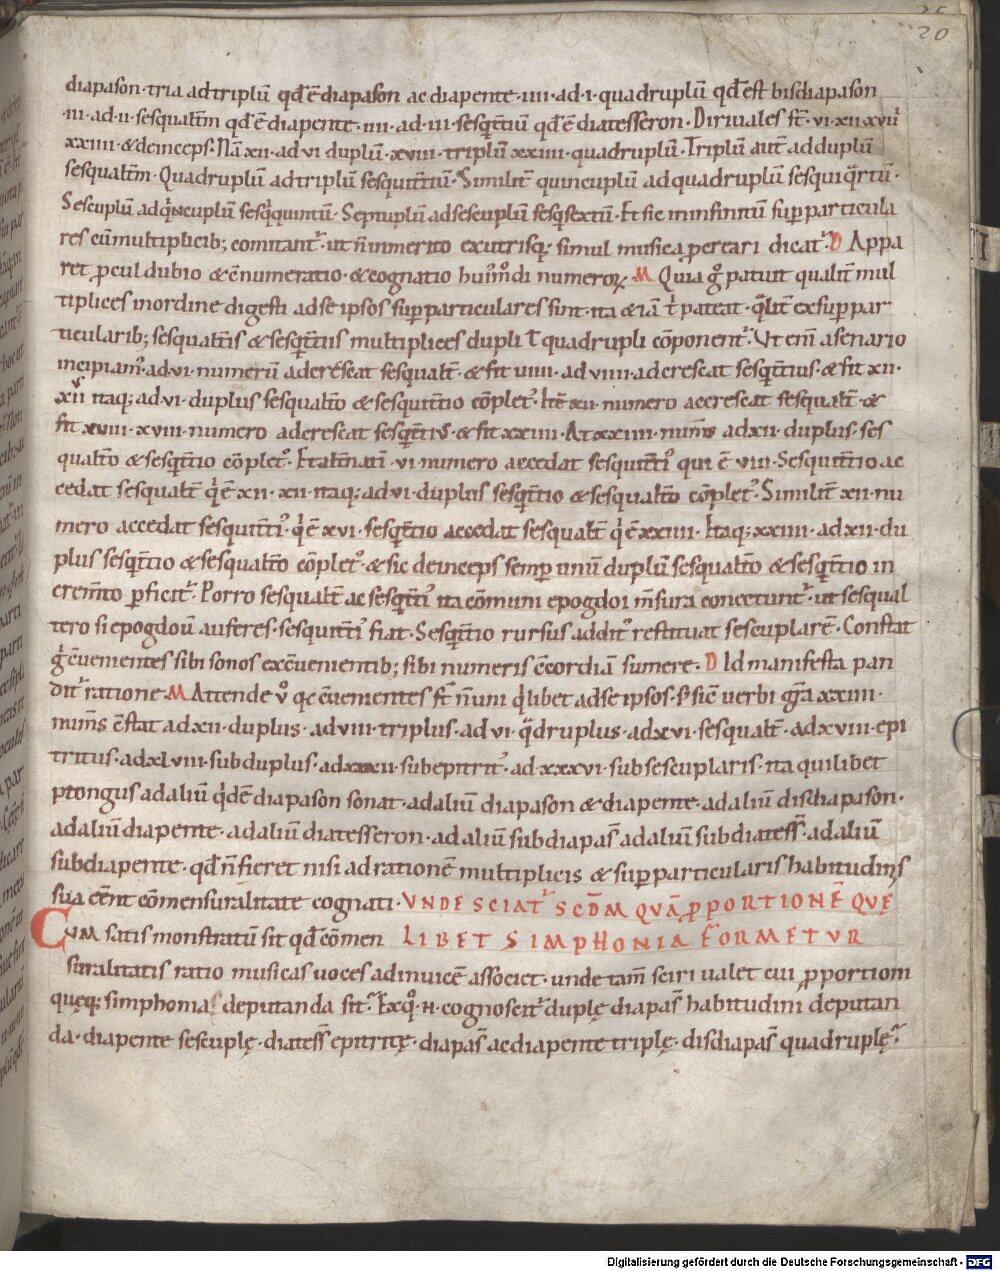 25
20
diapason · tria ad triplū qđ ē diapason ac diapente · iiii · ad · i · quadruplū qđ est bisdiapason
iii · ad · ii · sesqualtm̄ qđ ē diapente · iiii · ad · iii · sesqr̄tiū qđ ē diatesseron · Diriuales st̄ · vi · xii · xviii
xxiiii · & deinceps · Nā xii · ad vi duplū · xviii · triplū xxiiii · quadruplū · Triplū aut̄ ad duplū
sesqualtm̄ · Quadruplū ad triplū sesquitt̄iū · Similit̄ quincuplū ad quadruplū sesquiqr̄tū ·
Sescuplū ad qͥncuplū sesqͥquintū · Septuplū ad sescuplū sesqͥsextū · Et sic in infinitū sup̱particula
res cū multiplicib; comitant᷑ · ut n̄ inmerito ex utrisq; simul musica ꝑcreari dicat᷑ · D Appa
ret ꝓcul dubio & c̄numeratio · & cognatio hui᷒modi numeroꝝ · M Quia gͦ patuit qualit̄ mul
tiplices in ordine digesti ad se ipsos sup̱particulares sint · ita & iā t̄ pateat · qͣlit̄ ex sup̱par
ticularib; sesqualt̄is & sesqr̄tiis multiplices dupli ł quadrupli cōponent᷑ · Vt eni a senario
incipiam᷒ · ad vi · numerū adcrescat sesqualt̄ · & fit viiii · ad viiii · adcrescat sesqr̄tius · & fit xii ·
xii itaq; ad vi · duplus sesqualt̄o & sesquitt̄io cōplet᷑ · Itē xii · numero accrescat sesqualt̄ · &
fit xviii · xviii · numero adcrescat sesqr̄tiꝰ · & fit xxiiii · At xxiiii · num̄s ad xii · duplus · ses
qualt̄o & sesqr̄tio cōplet᷑ · Et alt̄natī · vi · numero accedat sesquitt̄i᷒ qui ē viii · Sesquitt̄io ac
cedat sesqualt̄ qͥ ē xii · xii · itaq; ad vi · duplus sesqr̄tio & sesqualt̄o cōplet᷑ · Similit̄ xii · nu
mero accedat sesquitt̄i᷒ · qͥ ē xvi · sesqr̄tio accedat sesqualt̄ qͥ ē xxiiii · Itaq; xxiiii · ad xii · du
plus sesqr̄tio & sesqualt̄o cōplet᷑ · & sic deinceps semp̱ unū duplū sesqualt̄o & sesqr̄tio in
crem̄to ꝑficit᷑ · Porro sesqualt̄ ac sesqr̄ti᷒ ita cōmuni epogdoi m̄sura conectunt᷑ · ut sesqual
tero si epogdoū auferes · sesquitt̄i᷒ fiat · Sesqr̄tio rursus addit᷒ restituat sescuplarē · Constat
gͦ c̄uenientes sibi sonos ex c̄uenientib; sibi numeris c̄cordiā sumere · D Id manifesta pan
dit᷑ ratione · M Attende ꝟo qͥ c̄uenientes st̄ n̄ uni qͥlibet ad se ipsos · s; sic uerbi gr̄a xxiiii ·
num̄s c̄stat ad xii · duplus · ad viii · triplus · ad vi · qͣdruplus · ad xvi · sesqualt̄ · ad xviii · epi
tritus · ad xlviii · subduplus · ad xxxii · subepitrit᷒ · ad xxxvi · subsescuplaris · ita quilibet
ptongus ad aliū qͥdē diapason sonat · ad aliū diapason & diapente · ad aliū disdiapason ·
ad aliū diapente · ad aliū diatesseron · ad aliū subdiapas̄ ad aliū subdiatess̄ · ad aliū
subdiapente · qđ n̄ fieret nisi ad rationē multiplicis & sup̱particularis habitudinis
sua eēnt cōmensuralitate cognati · VNDE SCIAT᷑ SCDM QVĀ PPORTIONĒ QVĘ
CVM satis monstratū sit qđ cōmen LIBET SIMPHONIA FORMETVR
suralitatis ratio musicas uoces ad inuicē associet · unde tam̄ sciri ualet cui ꝓportioni
quęq; simphonia deputanda sit · Ex qͦ · n · cognoscit᷑ duplę diapas̄ habitudini deputan
da · diapente sescuplę · diatess̄ epitritę · diapas̄ ac diapente triplę · disdiapas̄ quadruplę ·
Digitalisierung gefördert durch die Deutsche Forschungsgemeinschaft - DFG